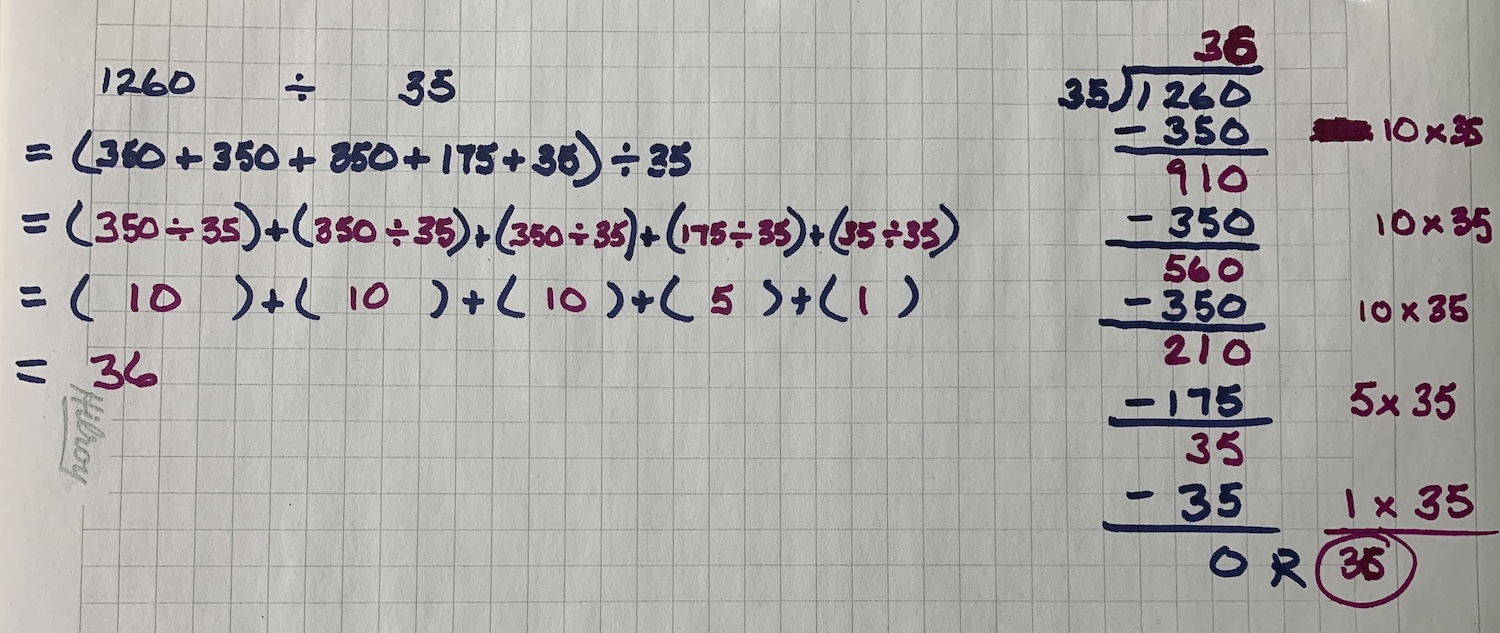 1260 ÷ 35
= (350 + 350 + 350 + 175 + 35) ÷ 35
= (350 ÷ 35) + (350 ÷ 35) + (350 ÷ 35) + (175 ÷ 35) + (35 ÷ 35)
= ( 10 ) + ( 10 ) + ( 10 ) + ( 5 ) + ( 1 )
= 36
Hilroy
36
35)1260
- 350 10 x 35
910
- 350 10 x 35
560
- 350 10 x 35
210
- 175 5 x 35
35
- 35 1 x 35
0 R 36